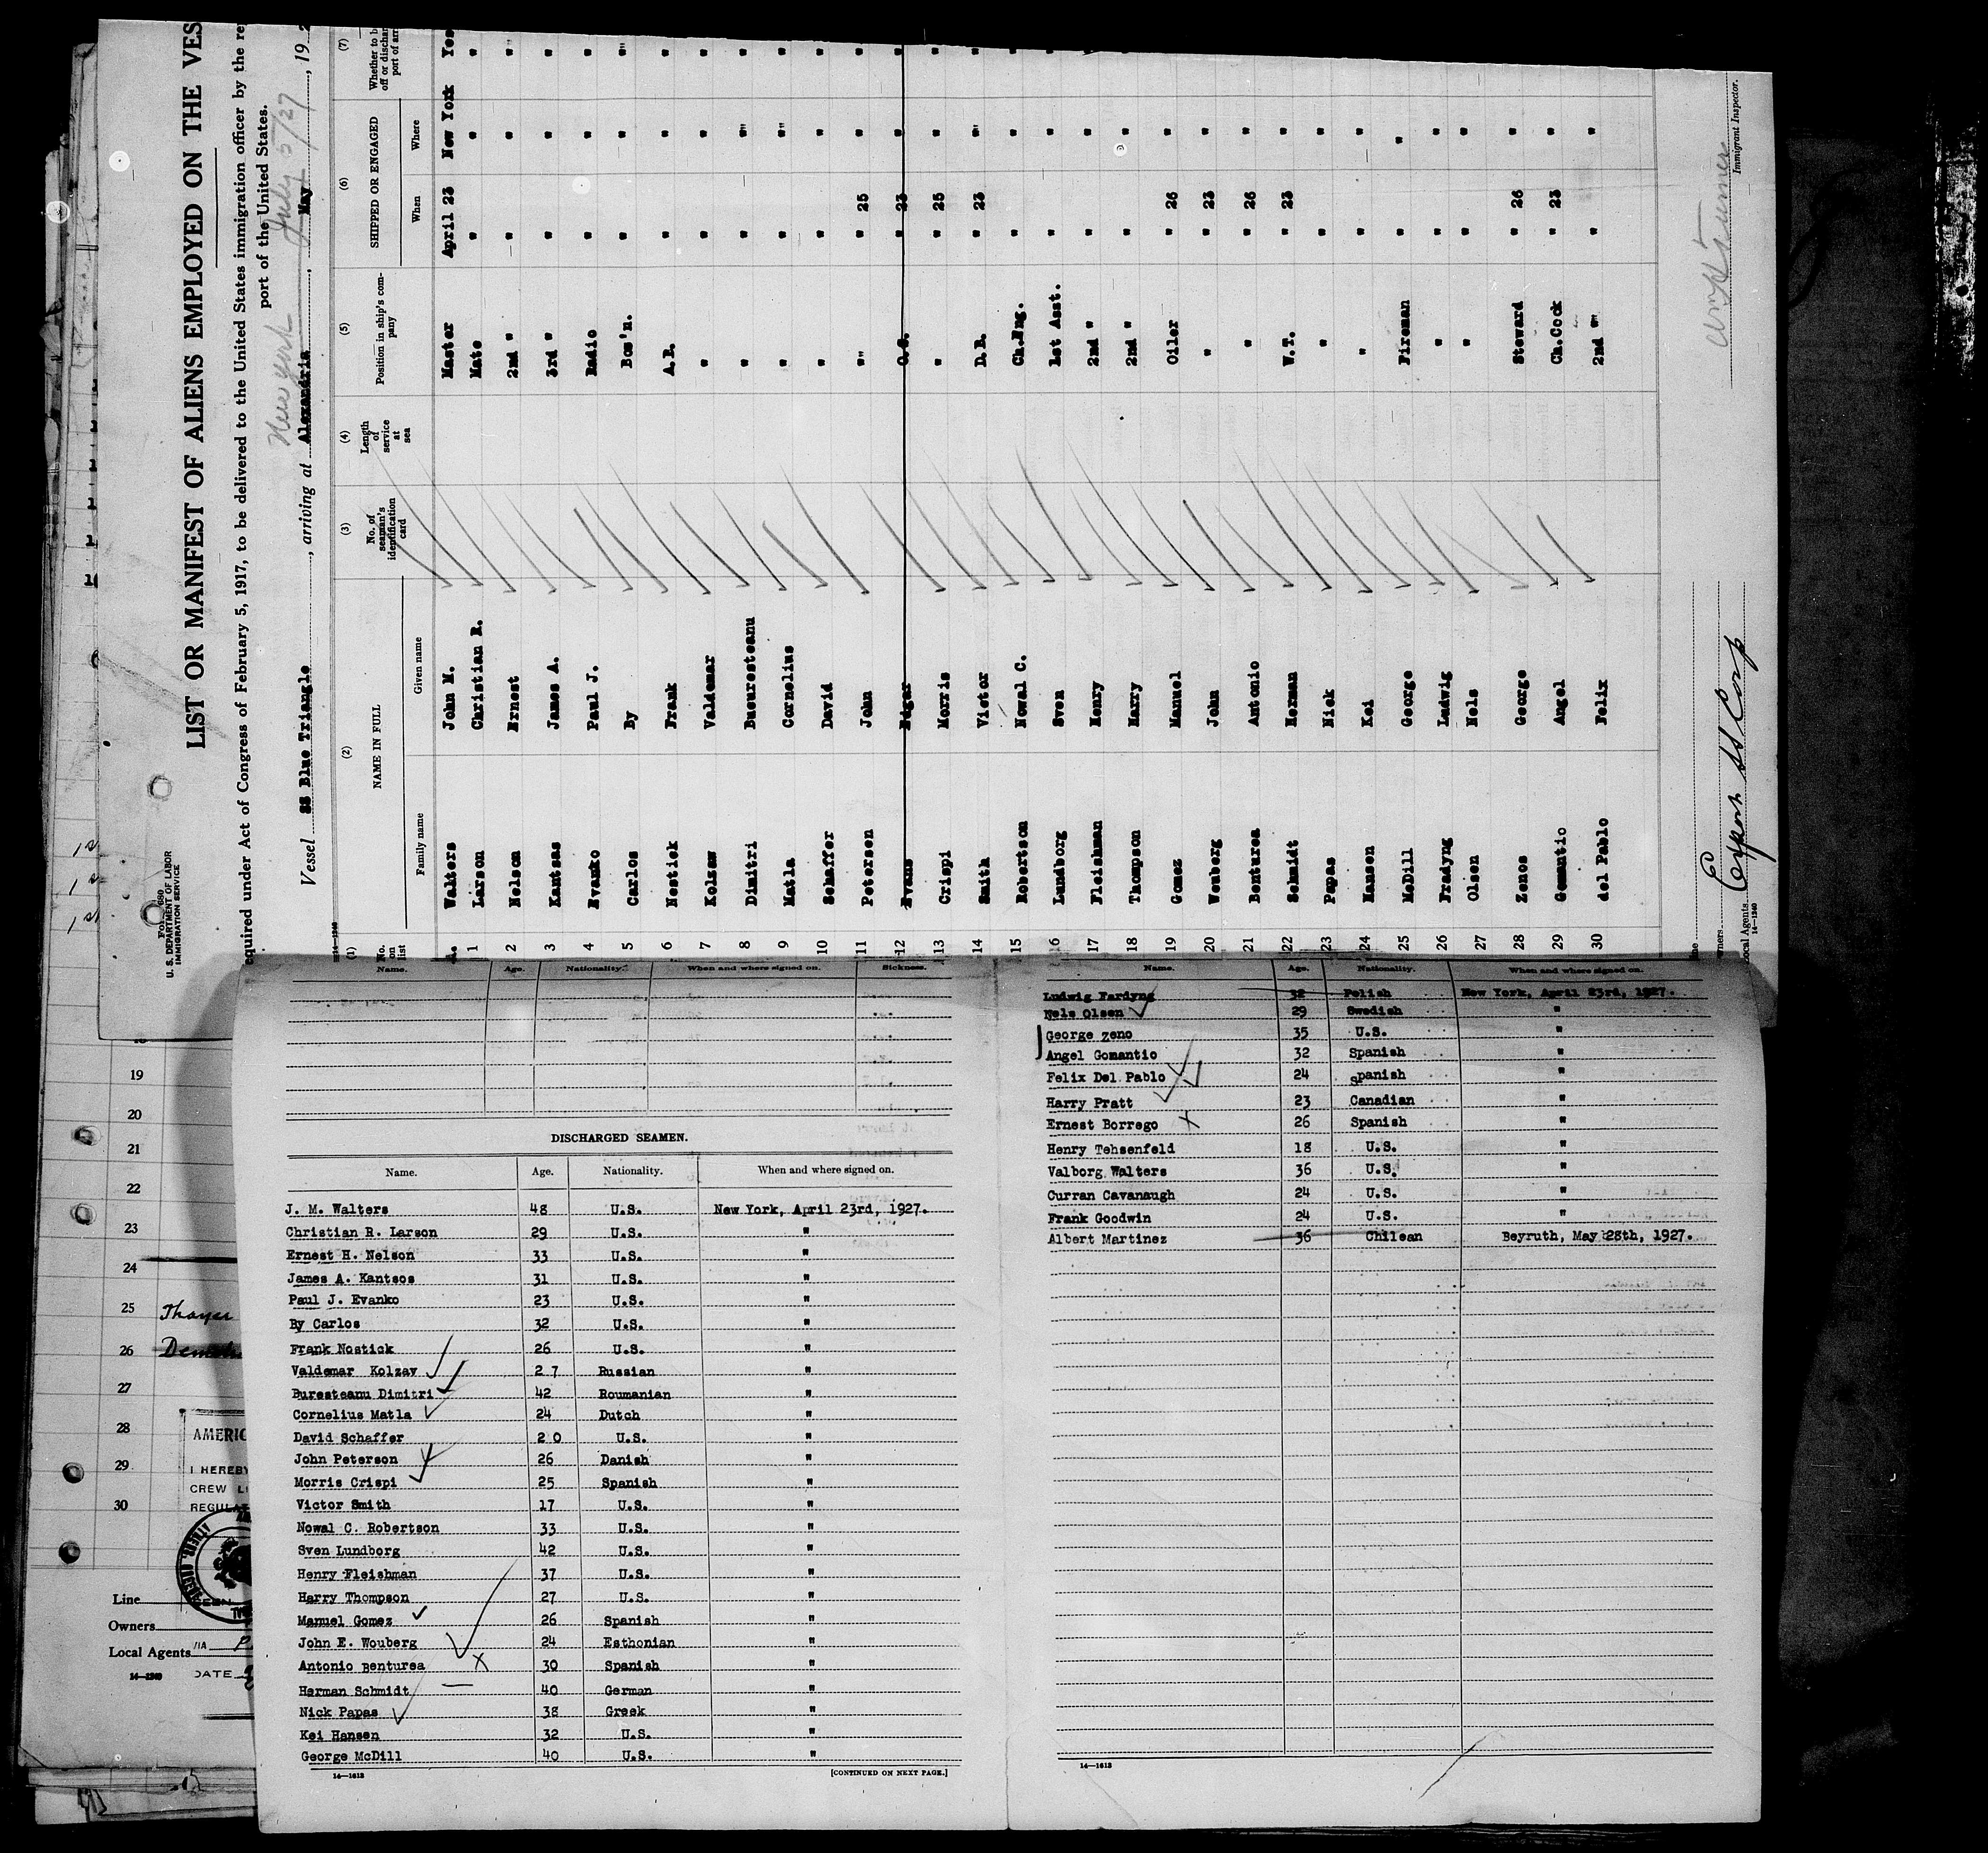 LIST OR MANIFEST OF ALIENS EMPLOYED ON THE VES
equired under Act of Congress of February 5, 1917, to be delivered to the United States immigration officer by the re
port of the United States.
New York July 5/27
Vessel SS Blue Triangle, arriving at Alexandria, May, 19 2
FORM 680
U. S. DEPARTMENT OF LABOR
IMMIGRATION SERVICE
14—1240
(1) (2) (3) (4) (5) (6) (7)
No. on list NAME IN FULL No. of seaman's identification card Length of service at sea Position in ship's company SHIPPED OR ENGAGED Whether to b off or dischar port of arr
Family name Given name When Where
Walters John M. Master April 23 New York Yes
1 Larson Christian R. Mate " " "
2 Nelson Ernest 2nd " " " "
3 Kantsas James A. 3rd " " " "
4 Evanko Paul J. Radio " " "
5 Carlos By Bos'n. " " "
6 Nostick Frank A.B. " " "
7 Kolzaw Valdemar " " " "
8 Dimitri Bucuresteanu " " " "
9 Matla Cornelius " " " "
10 Schaffer David " " " "
11 Petersen John " " 25 " "
12 Evans Edgar O.S. " 23 " "
13 Crispi Morris " " 25 " "
14 Smith Victor D.B. " 23 " "
15 Robertson Nowal C. Ch.Eng. " " "
16 Lundborg Sven 1st Asst. " " "
17 Fleishman Henry 2nd " " " "
18 Thompson Harry 2nd " " "
19 Gomez Manuel Oiler " 26 "
20 Wouberg John " " 23 "
21 Bentures Antonio " " 26 "
22 Schmidt Herman W.T. " 23 "
23 Papas Nick " " "
24 Hansen Kei " " "
25 McDill George Fireman " "
26 Fradyng Ludwig " " "
27 Olsen Nels " " "
28 Zenos George Steward " 26 "
29 Gomantio Angel Ch.Cock " 23 "
30 del Pablo Felix 2nd " " "
Immigrant Inspector.
Local Agents Export SS Corp
14—1240
Name. Age. Nationality. When and where signed on. Sickness.
DISCHARGED SEAMEN.
Name. Age. Nationality. When and where signed on.
J. M. Walters 48 U.S. New York, April 23rd, 1927.
Christian R. Larson 29 U.S. "
Ernest H. Nelson 33 U.S. "
James A. Kantsos 31 U.S. "
Paul J. Evanko 23 U.S. "
By Carlos 32 U.S. "
Frank Nostick 26 U.S. "
Valdemar Kolzav 27 Russian "
Buresteanu Dimitri 42 Roumanian "
Cornelius Matla 24 Dutch "
David Schaffer 20 U.S. "
John Peterson 26 Danish "
Morris Crispi 25 Spanish "
Victor Smith 17 U.S. "
Nowal C. Robertson 33 U.S. "
Sven Lundborg 42 U.S. "
Henry Fleishman 37 U.S. "
Harry Thompson 27 U.S. "
Manuel Gomez 26 Spanish "
John E. Wouberg 24 Esthonian "
Antonio Benturea 30 Spanish "
Harman Schmidt 40 German "
Nick Papas 38 Greek "
Kei Hansen 32 U.S. "
George McDill 40 U.S. "
14—1613 [CONTINUED ON NEXT PAGE.]
Name. Age. Nationality. When and where signed on.
Ludwig Fardyng 32 Polish New York, April 23rd, 1927.
Nels Olsen 29 Swedish "
George Zeno 35 U.S. "
Angel Gomantio 32 Spanish "
Felix Del Pablo 24 Spanish "
Harry Pratt 23 Canadian "
Ernest Borrego 26 Spanish "
Henry Tehsenfeld 18 U.S. "
Valborg Walters 36 U.S. "
Curran Cavanaugh 24 U.S. "
Frank Goodwin 24 U.S. "
Albert Martinez 36 Chilean Beyruth, May 28th, 1927.
14—1613
19
20
21
22
23
24
25 Thayer
26
27
28
29
30
AMERIC
I HEREBY
CREW LI
REGULAT
Line
Owners
Local Agents
14—1240
DATE